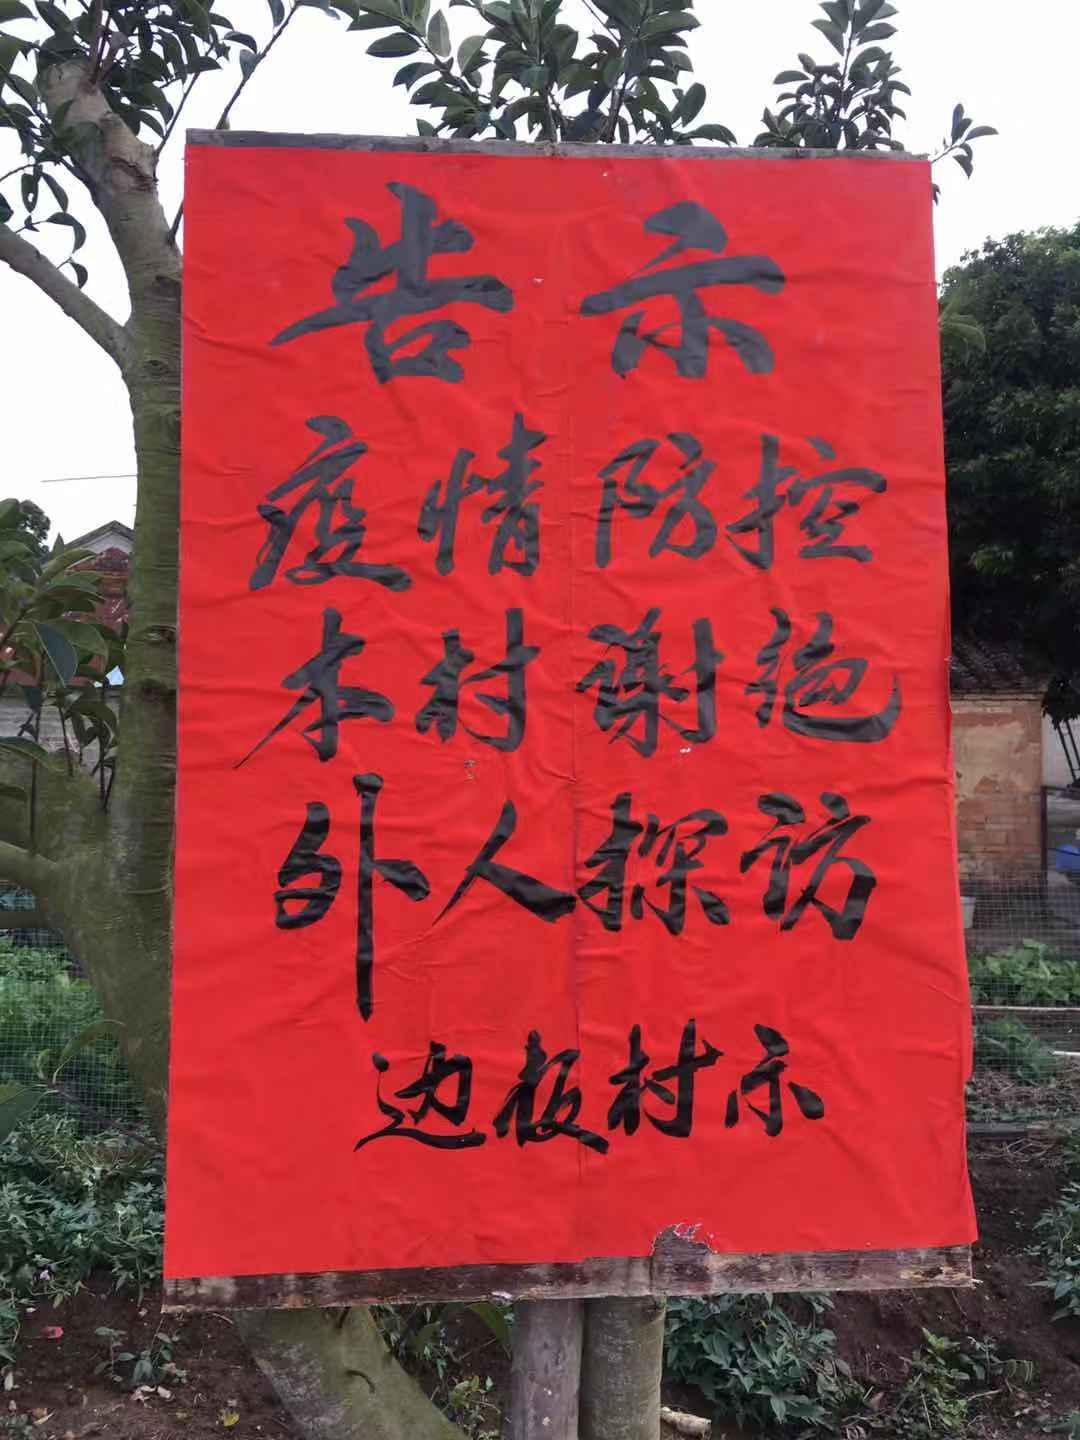 告示
疫情防控
本村谢绝
外人探访
边板村示